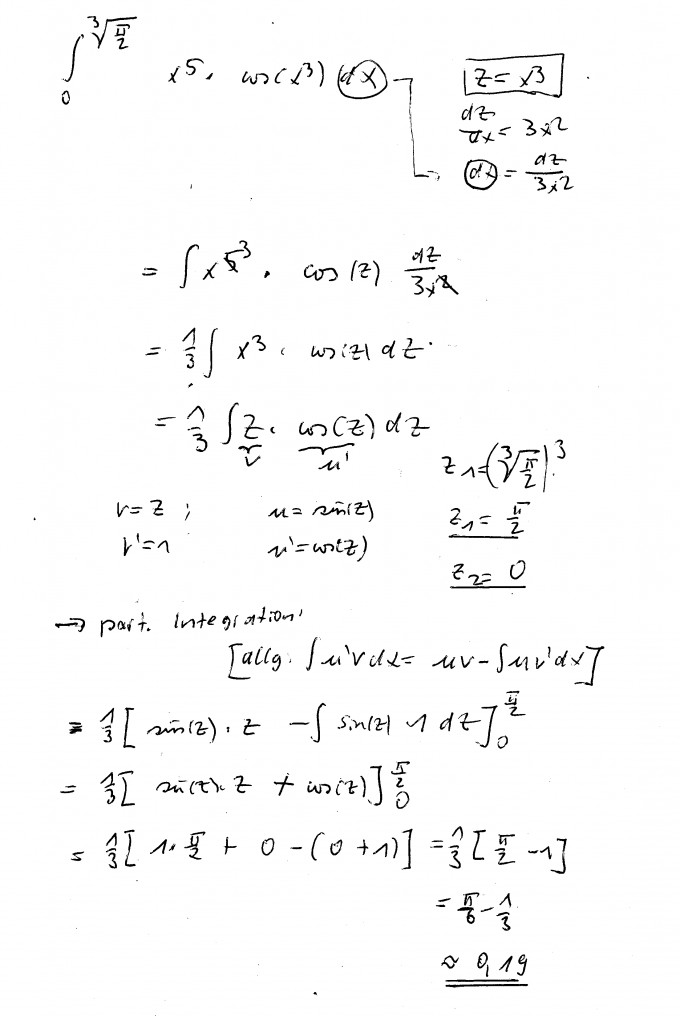 ∫₀^{∛(π/2)} x⁵ · cos(x³) dx
z = x³
dz/dx = 3x²
dx = dz/3x²
= ∫ x⁵ ³ · cos(z) dz/3x²
= 1/3 ∫ x³ · cos(z) dz
= 1/3 ∫ z · cos(z) dz
v u'
z₁ = (∛(π/2))³
v = z ; u = sin(z)
z₁ = π/2
v' = 1 u' = cos(z)
z₂ = 0
→ part. Integration:
[allg. ∫u'v dx = uv - ∫uv'dx]
= 1/3 [sin(z) · z - ∫ sin(z) 1 dz]₀^{π/2}
= 1/3 [sin(z) · z + cos(z)]₀^{π/2}
= 1/3 [1 · π/2 + 0 - (0 + 1)] = 1/3 [π/2 - 1]
= π/6 - 1/3
≈ 0,19